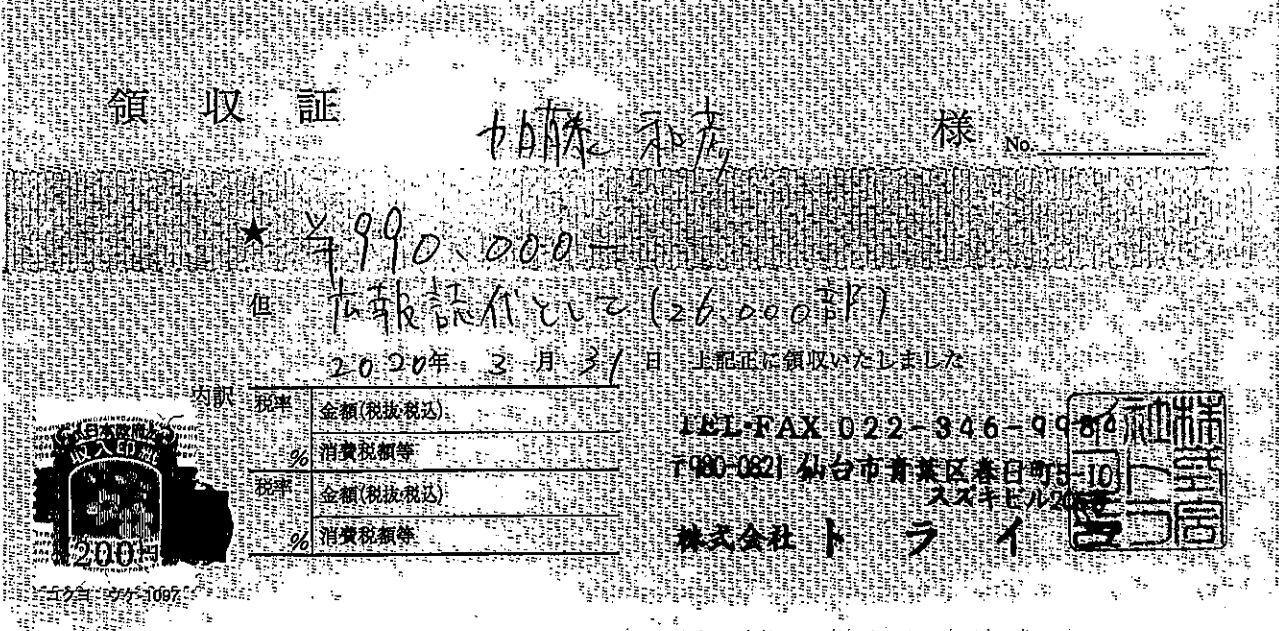 領収証 加藤 和彦 様 No.
★ ¥990,000-
但 広報誌代として(26.000部)
2020年 3月 31日 上記正に領収いたしました
内訳 税率 金額(税抜・税込)
% 消費税額等
税率 金額(税抜・税込)
% 消費税額等
日本政府
収入印紙
200円
コクヨ ウケ-1097
TEL・FAX 022-346-9984
〒980-0821 仙台市青葉区春日町5-10
スズキビル
株式会社 トライ